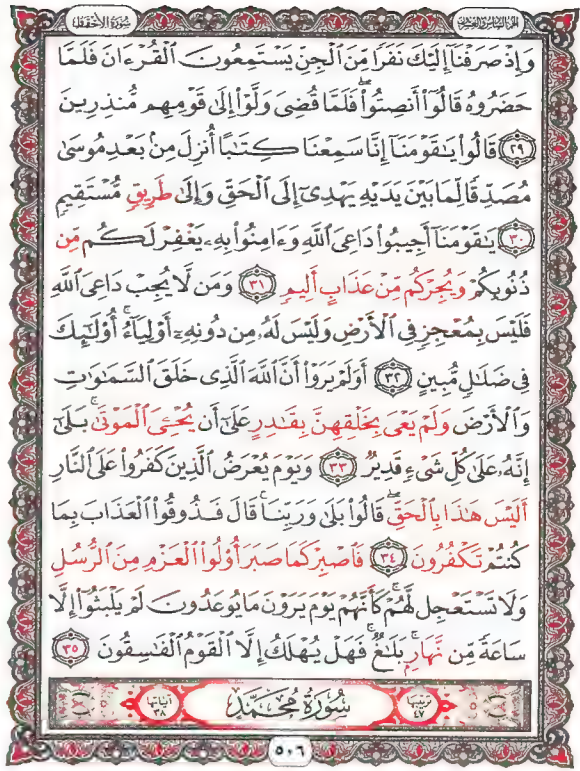 سُورَةُ الأَحْقَافِ الجزء السادس والعشرون
وَإِذْ صَرَفْنَآ إِلَيْكَ نَفَرًا مِّنَ ٱلْجِنِّ يَسْتَمِعُونَ ٱلْقُرْءَانَ فَلَمَّا
حَضَرُوهُ قَالُوٓا۟ أَنصِتُوا۟ ۖ فَلَمَّا قُضِىَ وَلَّوْا۟ إِلَىٰ قَوْمِهِم مُّنذِرِينَ
﴿٢٩﴾ قَالُوا۟ يَٰقَوْمَنَآ إِنَّا سَمِعْنَا كِتَٰبًا أُنزِلَ مِنۢ بَعْدِ مُوسَىٰ
مُصَدِّقًا لِّمَا بَيْنَ يَدَيْهِ يَهْدِىٓ إِلَى ٱلْحَقِّ وَإِلَىٰ طَرِيقٍ مُّسْتَقِيمٍ
﴿٣٠﴾ يَٰقَوْمَنَآ أَجِيبُوا۟ دَاعِىَ ٱللَّهِ وَءَامِنُوا۟ بِهِۦ يَغْفِرْ لَكُم مِّن
ذُنُوبِكُمْ وَيُجِرْكُم مِّنْ عَذَابٍ أَلِيمٍ ﴿٣١﴾ وَمَن لَّا يُجِبْ دَاعِىَ ٱللَّهِ
فَلَيْسَ بِمُعْجِزٍ فِى ٱلْأَرْضِ وَلَيْسَ لَهُۥ مِن دُونِهِۦٓ أَوْلِيَآءُ ۚ أُو۟لَٰٓئِكَ
فِى ضَلَٰلٍ مُّبِينٍ ﴿٣٢﴾ أَوَلَمْ يَرَوْا۟ أَنَّ ٱللَّهَ ٱلَّذِى خَلَقَ ٱلسَّمَٰوَٰتِ
وَٱلْأَرْضَ وَلَمْ يَعْىَ بِخَلْقِهِنَّ بِقَٰدِرٍ عَلَىٰٓ أَن يُحْۦِىَ ٱلْمَوْتَىٰ ۚ بَلَىٰٓ
إِنَّهُۥ عَلَىٰ كُلِّ شَىْءٍ قَدِيرٌ ﴿٣٣﴾ وَيَوْمَ يُعْرَضُ ٱلَّذِينَ كَفَرُوا۟ عَلَى ٱلنَّارِ
أَلَيْسَ هَٰذَا بِٱلْحَقِّ ۖ قَالُوا۟ بَلَىٰ وَرَبِّنَا ۚ قَالَ فَذُوقُوا۟ ٱلْعَذَابَ بِمَا
كُنتُمْ تَكْفُرُونَ ﴿٣٤﴾ فَٱصْبِرْ كَمَا صَبَرَ أُو۟لُوا۟ ٱلْعَزْمِ مِنَ ٱلرُّسُلِ
وَلَا تَسْتَعْجِل لَّهُمْ ۚ كَأَنَّهُمْ يَوْمَ يَرَوْنَ مَا يُوعَدُونَ لَمْ يَلْبَثُوٓا۟ إِلَّا
سَاعَةً مِّن نَّهَارٍۭ ۚ بَلَٰغٌ ۚ فَهَلْ يُهْلَكُ إِلَّا ٱلْقَوْمُ ٱلْفَٰسِقُونَ ﴿٣٥﴾
ترتيبها ٤٧ سُورَةُ مُحَمَّدٍ آياتها ٣٨
٥٠٦